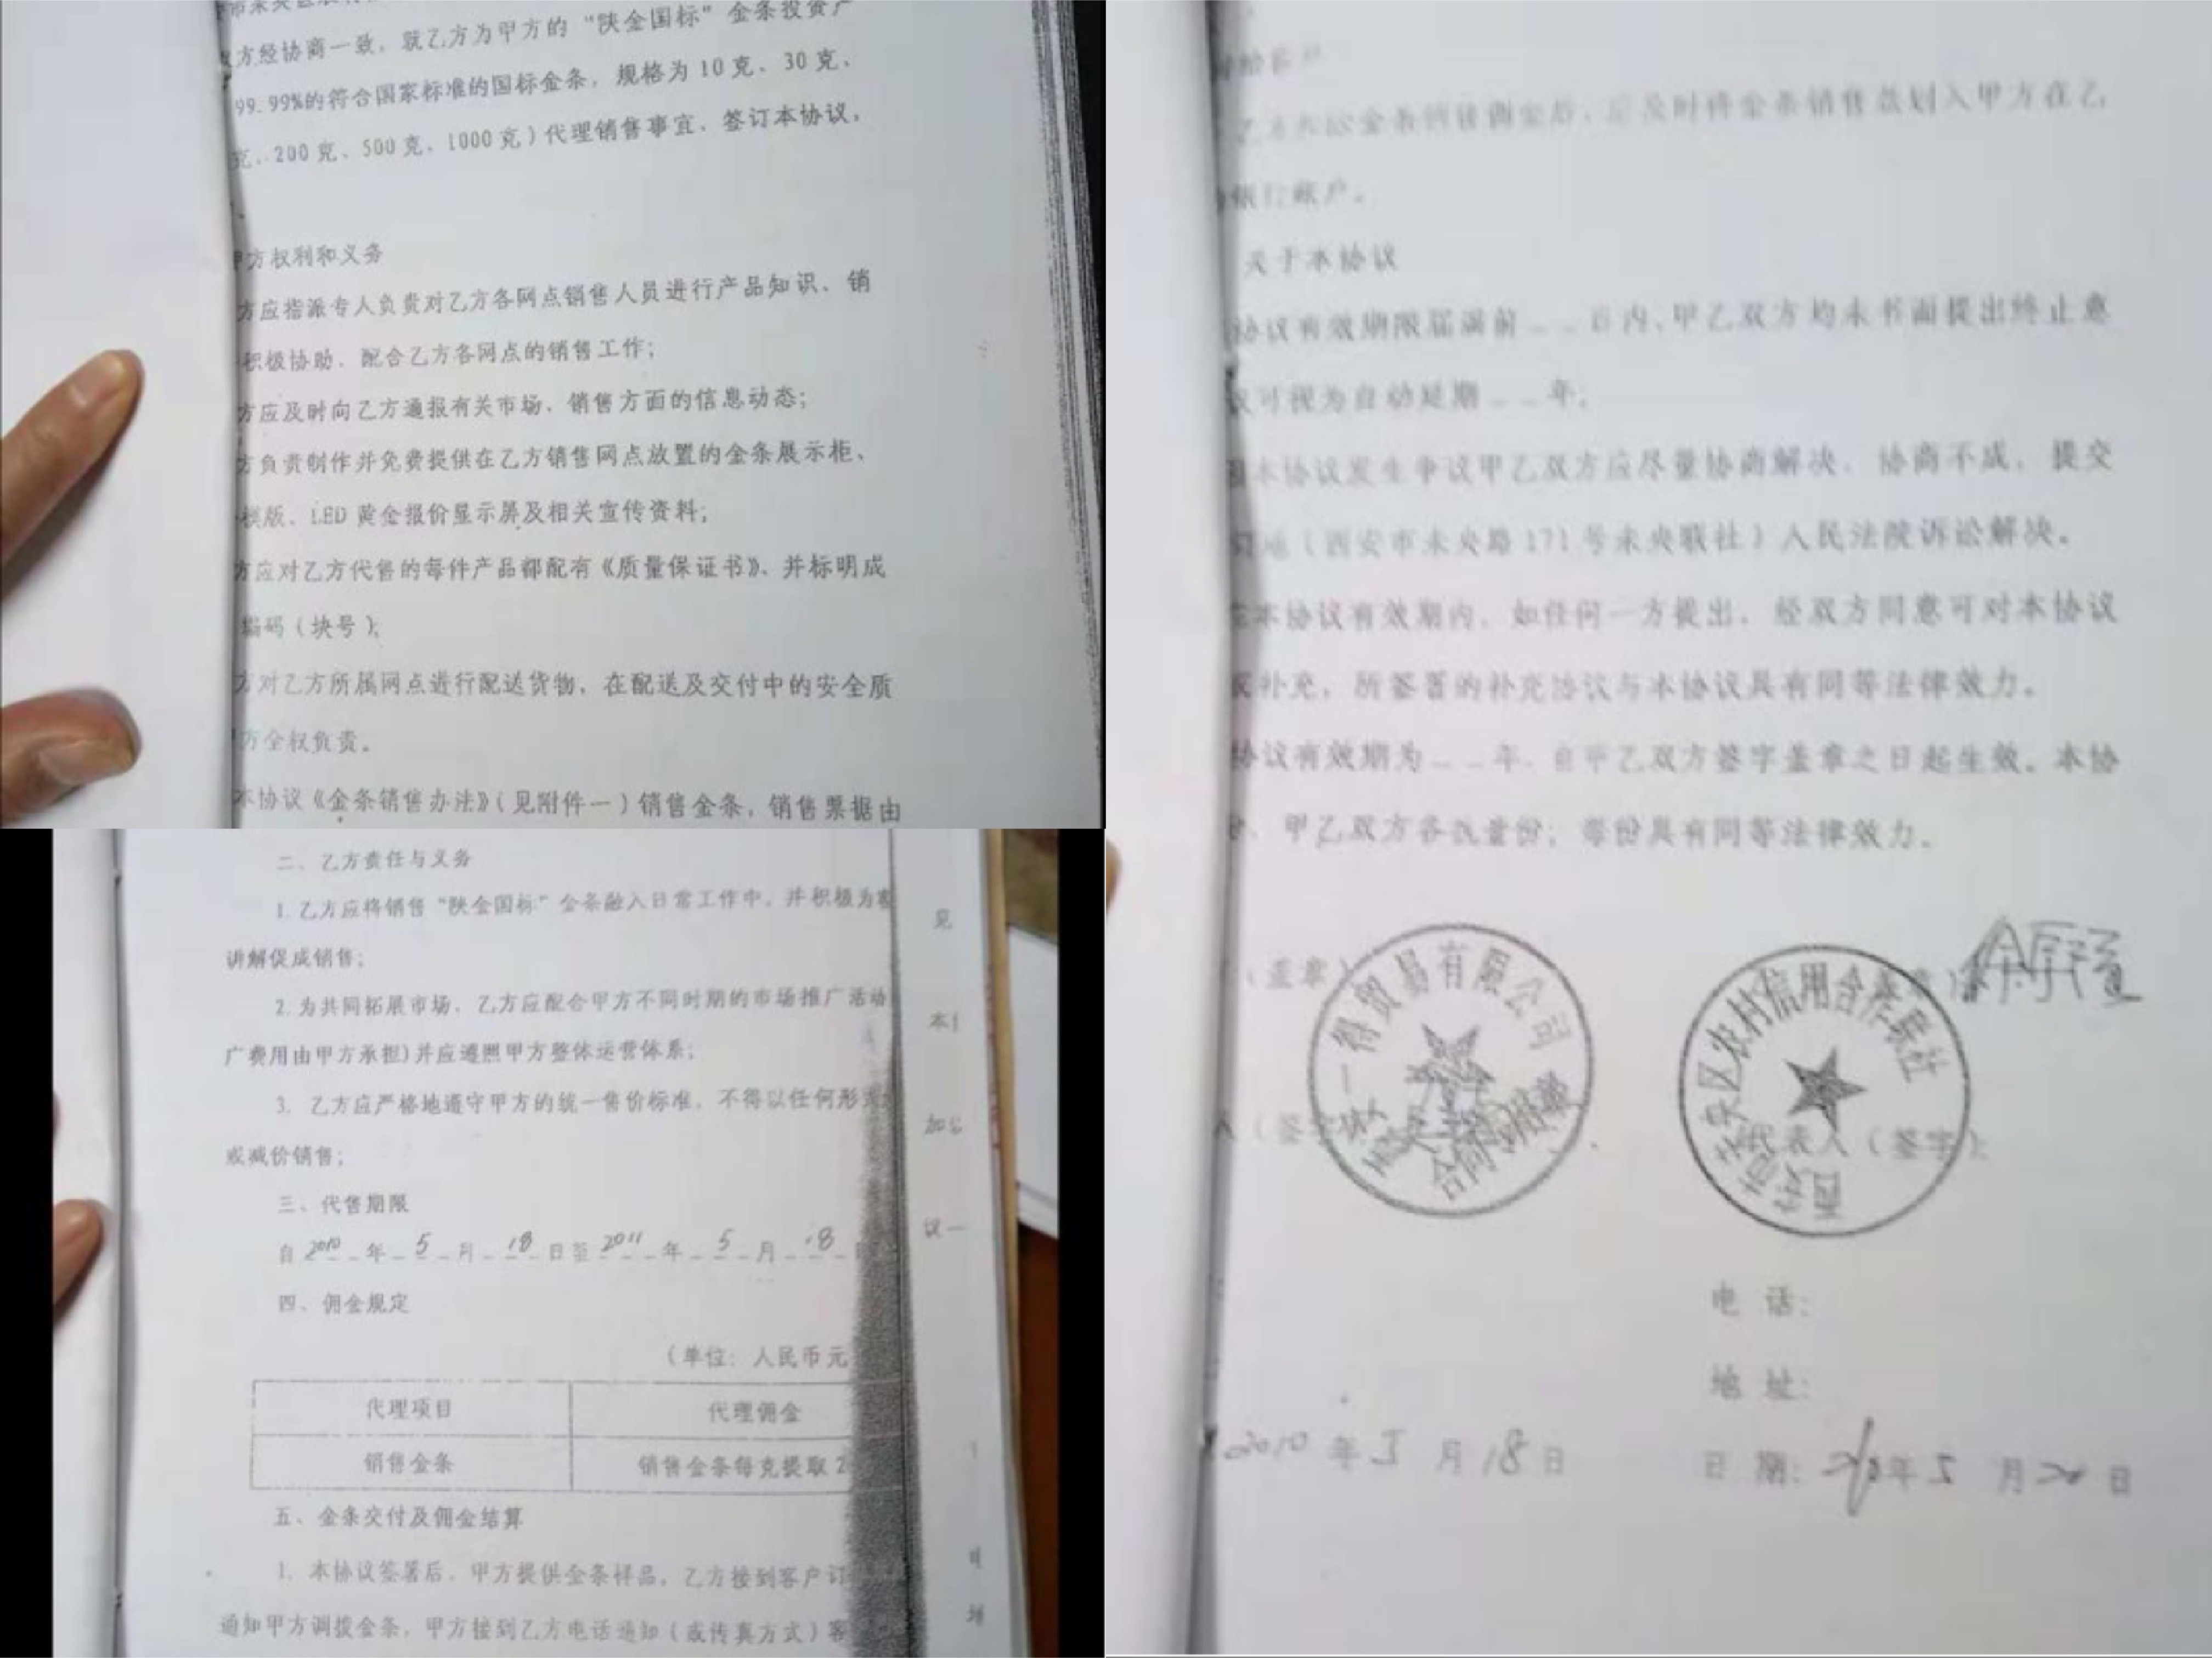 方经协商一致，就乙方为甲方的“陕金国标”金条投资产
99.99%的符合国家标准的国标金条，规格为10克、30克、
克、200克、500克、1000克）代理销售事宜、签订本协议，
方权利和义务
方应指派专人负责对乙方各网点销售人员进行产品知识、销
积极协助、配合乙方各网点的销售工作；
方应及时向乙方通报有关市场、销售方面的信息动态；
方负责制作并免费提供在乙方销售网点放置的金条展示柜、
模版、LED黄金报价显示屏及相关宣传资料；
方应对乙方代售的每件产品都配有《质量保证书》、并标明成
编码（块号）；
方对乙方所属网点进行配送货物，在配送及交付中的安全质
方全权负责。
本协议《金条销售办法》（见附件一）销售金条，销售票据由
二、乙方责任与义务
1.乙方应将销售“陕金国标”金条融入日常工作中，并积极为客
讲解促成销售；
2.为共同拓展市场，乙方应配合甲方不同时期的市场推广活动
广费用由甲方承担)并应遵照甲方整体运营体系；
3. 乙方应严格地遵守甲方的统一售价标准，不得以任何形式
或减价销售；
三、代售期限
自2010年5月18日至2011年5月18
四、佣金规定
（单位：人民币元
代理项目 代理佣金
销售金条 销售金条每克提取2
五、金条交付及佣金结算
1. 本协议签署后，甲方提供金条样品，乙方接到客户订
通知甲方调拨金条，甲方接到乙方电话通知（或传真方式）客
见
本
议一
后，应及时将金条销售款划入甲方在乙
银行账户。
关于本协议
协议有效期限届满前__日内，甲乙双方均未书面提出终止意
议可视为自动延期__年；
本协议发生争议甲乙双方应尽量协商解决，协商不成，提交
地（西安市未央路171号未央联社）人民法院诉讼解决。
本协议有效期内，如任何一方提出，经双方同意可对本协议
补充，所签署的补充协议与本协议具有同等法律效力。
协议有效期为__年，自甲乙双方签字盖章之日起生效。本协
甲乙双方各执壹份；每份具有同等法律效力。
（盖章）
一得贸易有限公司
合同专用章
西安市未央区农村信用合作联社
代表人（签字）：
电 话：
地 址：
2010年5月18日
日 期： 年5月20日